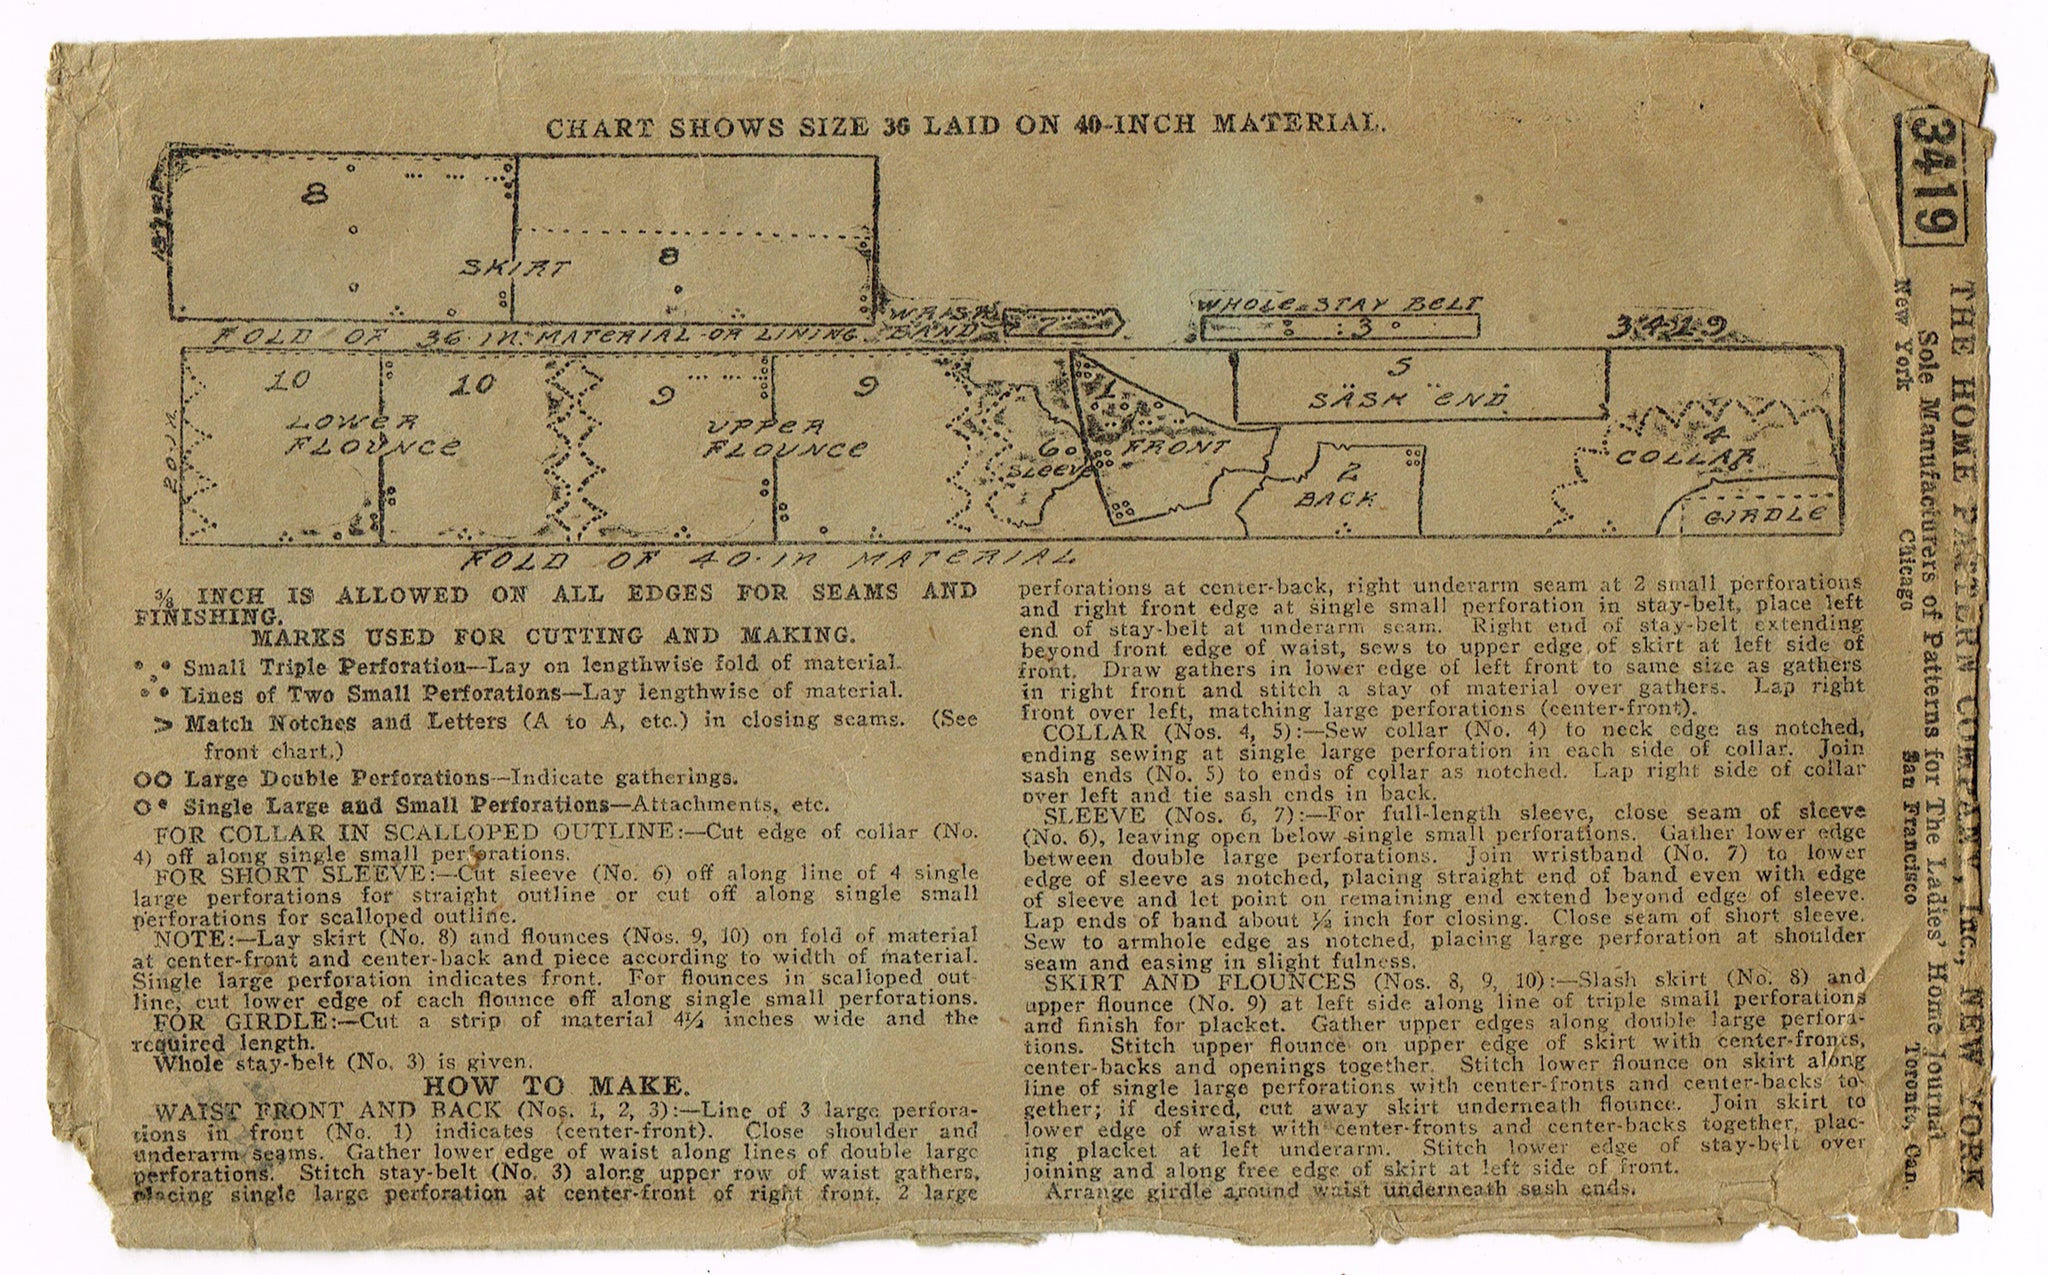 CHART SHOWS SIZE 36 LAID ON 40-INCH MATERIAL.
8
SKIRT
8
FOLD OF 36 in. MATERIAL OR LINING
WRIST BAND
7
WHOLE STAY BELT
3
3419
10
10
LOWER FLOUNCE
9
9
UPPER FLOUNCE
20 in
6
SLEEVE
1
FRONT
5
SASH END
2
BACK
4
COLLAR
GIRDLE
FOLD OF 40-in MATERIAL
⅜ INCH IS ALLOWED ON ALL EDGES FOR SEAMS AND
FINISHING.
MARKS USED FOR CUTTING AND MAKING.
Small Triple Perforation—Lay on lengthwise fold of material.
Lines of Two Small Perforations—Lay lengthwise of material.
> Match Notches and Letters (A to A, etc.) in closing seams. (See
front chart.)
Large Double Perforations—Indicate gatherings.
Single Large and Small Perforations—Attachments, etc.
FOR COLLAR IN SCALLOPED OUTLINE:—Cut edge of collar (No.
4) off along single small perforations.
FOR SHORT SLEEVE:—Cut sleeve (No. 6) off along line of 4 single
large perforations for straight outline or cut off along single small
perforations for scalloped outline.
NOTE:—Lay skirt (No. 8) and flounces (Nos. 9, 10) on fold of material
at center-front and center-back and piece according to width of material.
Single large perforation indicates front. For flounces in scalloped out-
line, cut lower edge of each flounce off along single small perforations.
FOR GIRDLE:—Cut a strip of material 4½ inches wide and the
required length.
Whole stay-belt (No. 3) is given.
HOW TO MAKE.
WAIST FRONT AND BACK (Nos. 1, 2, 3):—Line of 3 large perfora-
tions in front (No. 1) indicates (center-front). Close shoulder and
underarm seams. Gather lower edge of waist along lines of double large
perforations. Stitch stay-belt (No. 3) along upper row of waist gathers,
placing single large perforation at center-front of right front, 2 large
perforations at center-back, right underarm seam at 2 small perforations
and right front edge at single small perforation in stay-belt, place left
end of stay-belt at underarm seam. Right end of stay-belt extending
beyond front edge of waist, sews to upper edge of skirt at left side of
front. Draw gathers in lower edge of left front to same size as gathers
in right front and stitch a stay of material over gathers. Lap right
front over left, matching large perforations (center-front).
COLLAR (Nos. 4, 5):—Sew collar (No. 4) to neck edge as notched,
ending sewing at single large perforation in each side of collar. Join
sash ends (No. 5) to ends of collar as notched. Lap right side of collar
over left and tie sash ends in back.
SLEEVE (Nos. 6, 7):—For full-length sleeve, close seam of sleeve
(No. 6), leaving open below single small perforations. Gather lower edge
between double large perforations. Join wristband (No. 7) to lower
edge of sleeve as notched, placing straight end of band even with edge
of sleeve and let point on remaining end extend beyond edge of sleeve.
Lap ends of band about ½ inch for closing. Close seam of short sleeve.
Sew to armhole edge as notched, placing large perforation at shoulder
seam and easing in slight fulness.
SKIRT AND FLOUNCES (Nos. 8, 9, 10):—Slash skirt (No. 8) and
upper flounce (No. 9) at left side along line of triple small perforations
and finish for placket. Gather upper edges along double large perfora-
tions. Stitch upper flounce on upper edge of skirt with center-fronts,
center-backs and openings together. Stitch lower flounce on skirt along
line of single large perforations with center-fronts and center-backs to-
gether; if desired, cut away skirt underneath flounce. Join skirt to
lower edge of waist with center-fronts and center-backs together, plac-
ing placket at left underarm. Stitch lower edge of stay-belt over
joining and along free edge of skirt at left side of front.
Arrange girdle around waist underneath sash ends.
3419
THE HOME PATTERN COMPANY, Inc., NEW YORK
Sole Manufacturers of Patterns for The Ladies' Home Journal
New York Chicago San Francisco Toronto, Can.